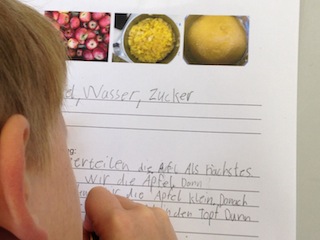 Wasser, Zucker
ng:
erteilen die Als nächstes
wir die Äpfel, Dann
wir die Äpfel klein, Danach
den Topf Dann